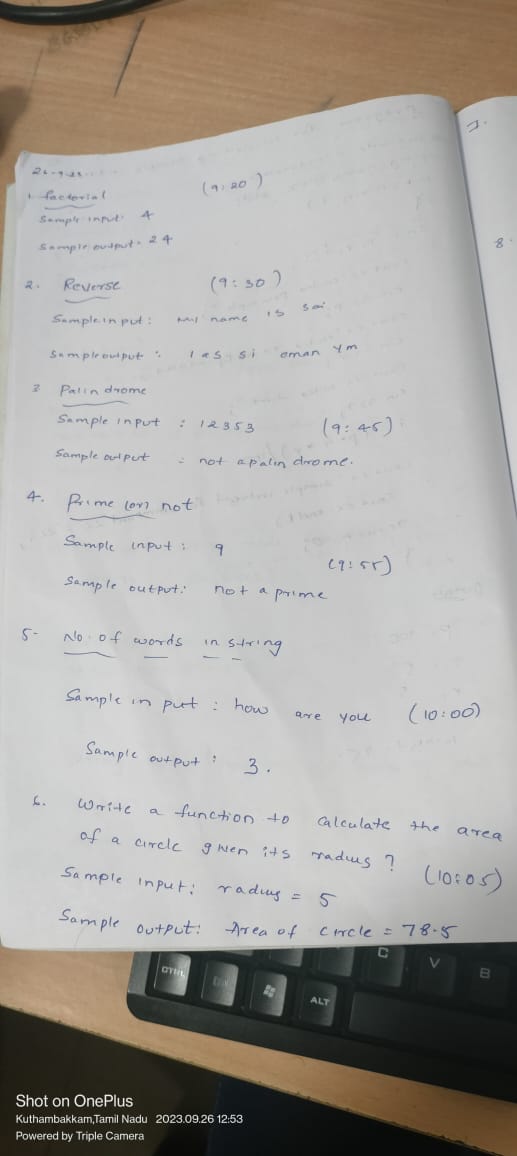 1. factorial (9:20)
Sample input: 4
Sample output: 24
2. Reverse (9:30)
Sample input: my name is sai
Sample output: ias si eman ym
3 Palin drome
Sample input : 12353 (9:45)
Sample output : not a palin drome.
4. Prime (or) not
Sample input : 9
(9:55)
Sample output: not a prime
5- No. of words in string
Sample in put : how are you (10:00)
Sample output : 3.
6. Write a function to calculate the area
of a circle given its radius ? (10:05)
Sample input: radius = 5
Sample output: Area of circle = 78.5
7.
8.
CTRL
ALT
C
V
B
Shot on OnePlus
Kuthambakkam,Tamil Nadu 2023.09.26 12:53
Powered by Triple Camera